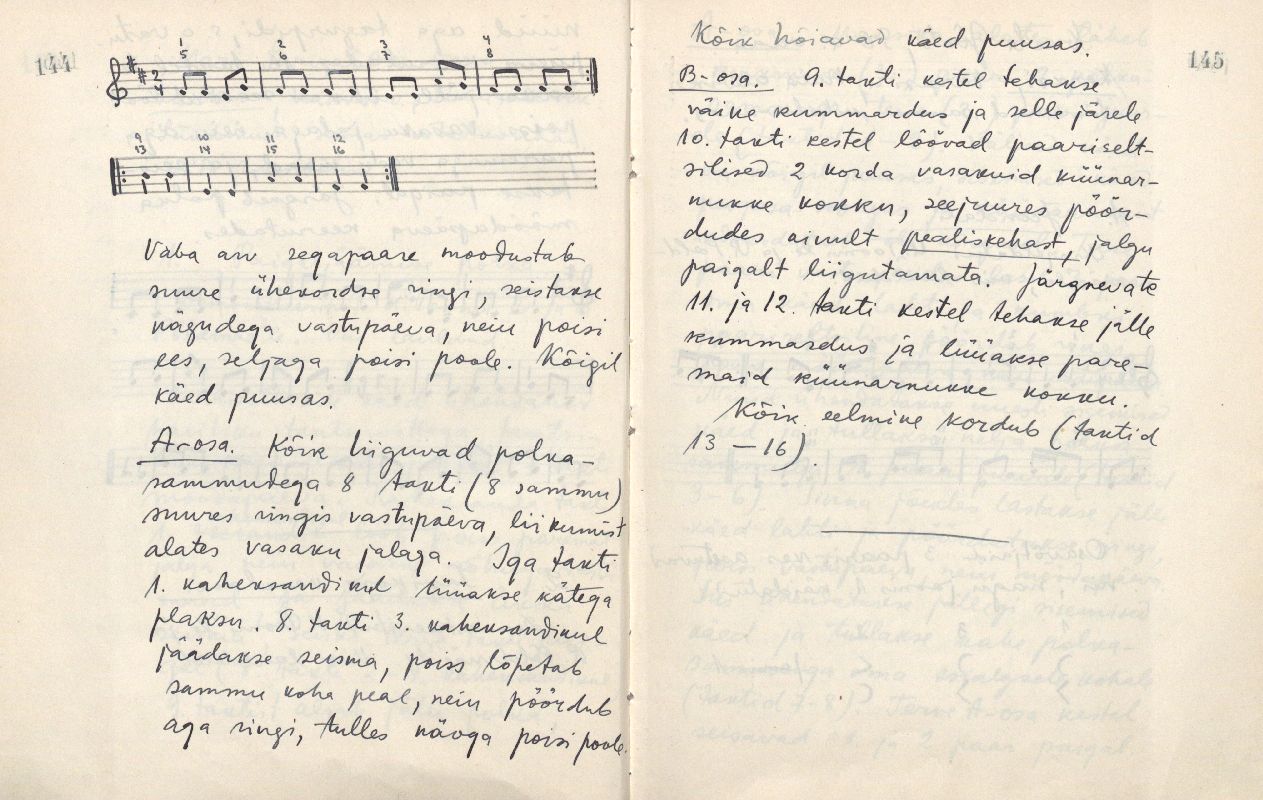 144
1 2 3 4
5 6 7 8
2
4
9 10 11 12
13 14 15 16
Vaba arv segapaare moodustab
suure ühekordse ringi, seistakse
nägudega vastupäeva, neiu poisi
ees, seljaga poisi poole. Kõigil
käed puusas.
A-osa. Kõik liiguvad polka-
sammudega 8 takti (8 sammu)
suures ringis vastupäeva, liikumist
alates vasaku jalaga. Iga takti
1. kaheksandikul lüüakse kätega
plaksu. 8. takti 3. kaheksandikul
jäädakse seisma, poiss lõpetab
sammu koha peal, neiu pöördub
aga ringi, tulles näoga poisi poole.
145
Kõik hoiavad käed puusas.
B-osa. 9. takti kestel tehakse
väike kummardus ja selle järele
10. takti kestel löövad paariselt-
silised 2 korda vasakuid küünar-
nukke kokku, seejuures pöör-
dudes ainult pealiskehast, jalgu
paigalt liigutamata. Järgnevate
11. ja 12. takti kestel tehakse jälle
kummardus ja lüüakse pare-
maid küünarnukke kokku.
Kõik eelmine kordub (taktid
13 — 16).